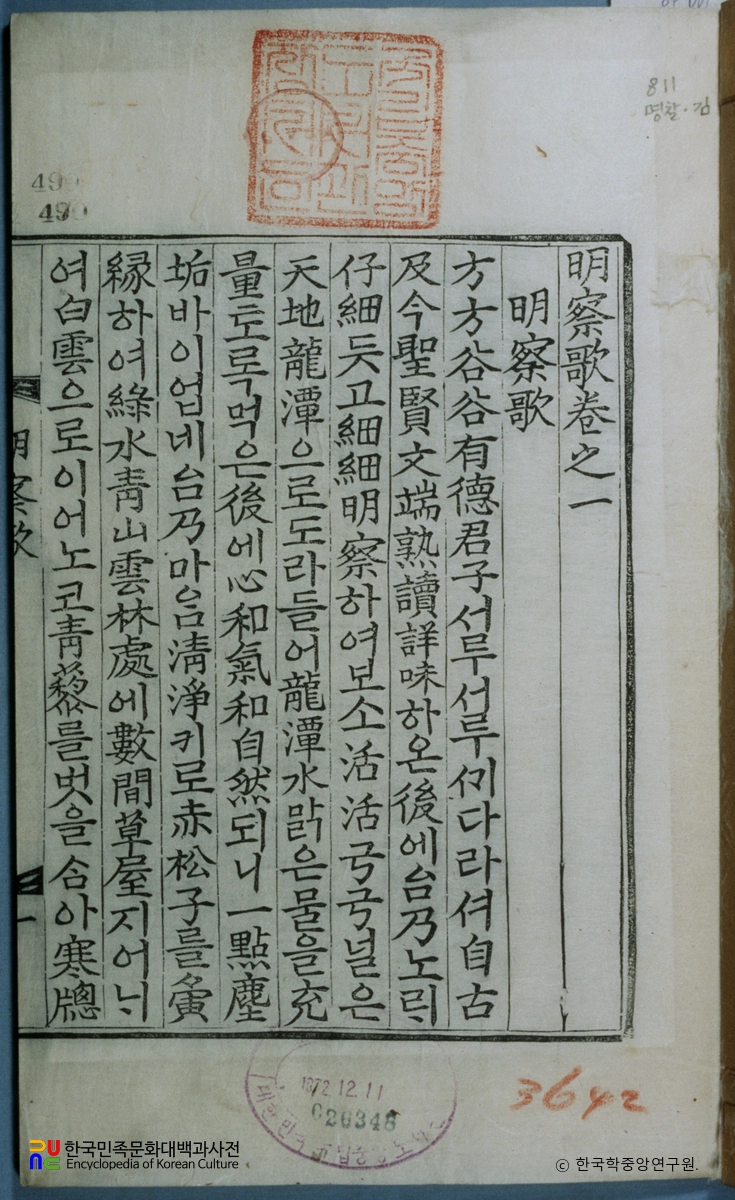 811
명찰·김
490
490
明察歌卷之一
明察歌
方方谷谷有德君子서루서루ᄭᆡ다라셔自古
及今聖賢文端熟讀詳味하온後에台乃노ᄅᆡ
仔細듯고細細明察하여보소活活국국널은
天地龍潭으로도라들어龍潭水맑은물을充
量토록먹은後에心和氣和自然되니一點塵
垢바이업네台乃마암淸淨키로赤松子를夤
緣하여綠水靑山雲林處에數間草屋지어ᄂᆡ
여白雲으로이어노코靑藜를벗을삼아寒牕
明察歌
一
1972.12.11
020348
3642
한국민족문화대백과사전
Encyclopedia of Korean Culture
© 한국학중앙연구원.